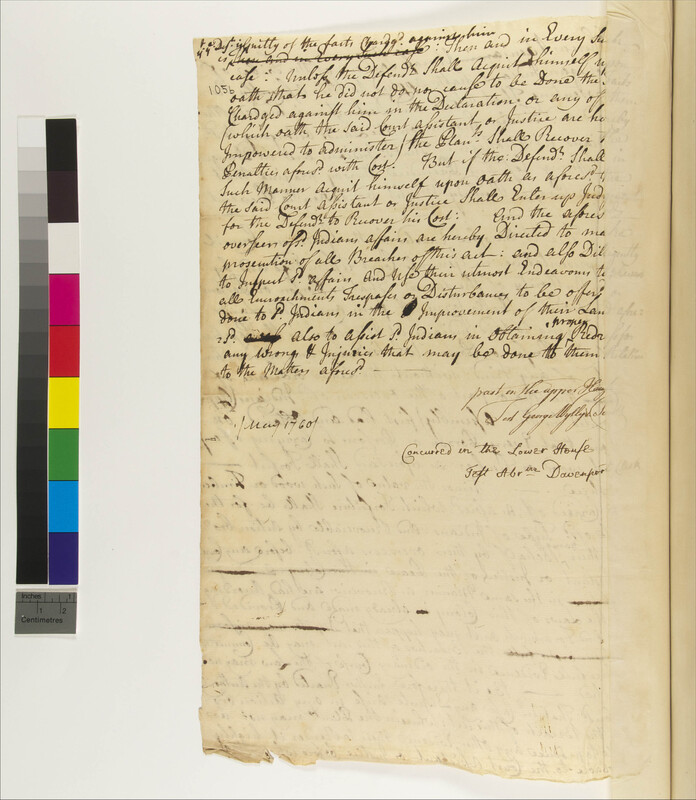 yt ye Deft is guilty of the facts Chargd. against him
is Then and in Every Such Case Then and in Every Su
case: Unless the Defendt. Shall Acquit himself u
105b
oath that he did not do nor cause to be Done the
Chardged against him in the Declaration, or any of
(which oath the said Court Assistant or Justice are he
Impowered to administer) the Plant. Shall Recover
Penalties aforesd. with Cost. But if the Defendt. Shall
Such Manner Acquit himself upon oath as aforesd.
the said Court Assistant or Justice Shall Enter up Jud
for the Defendt. to Recover his Cost: And the afores
overseers of sd. Indians affairs are hereby Directed to ma
prosecution of all Breaches of this act: and also Dil
to Inspect sd. affairs and Use their utmost Endeavours to
all Encroachments Trespases or Disturbances to be offer
done to sd. Indians in the Improvement of their Lan
& also to assist sd. Indians in Obtaining proper Redr
any wrongs & Injuries that may be done to them
to the Matters aforesd.
past in the upper House
Test George Wyllys
[May 1760]
Concurred in the Lower House
Test Abrm Davenpor
Inches
1
2
Centimetres